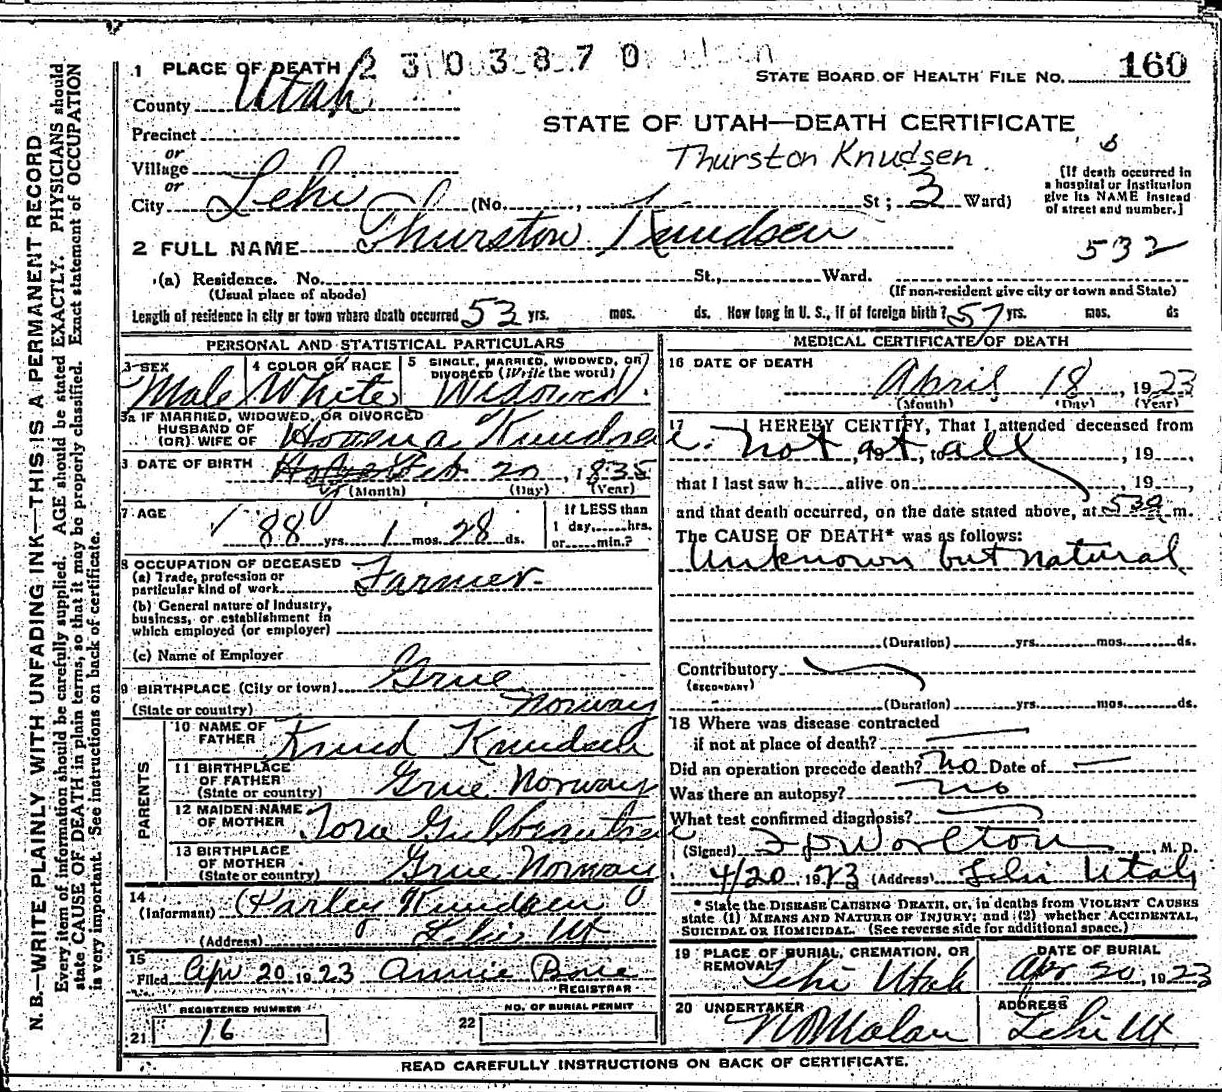 N. B.—WRITE PLAINLY WITH UNFADING INK—THIS IS A PERMANENT RECORD
Every item of information should be carefully supplied. AGE should be stated EXACTLY. PHYSICIANS should
state CAUSE OF DEATH in plain terms, so that it may be properly classified. Exact statement of OCCUPATION
is very important. See instructions on back of certificate.
2303870
1 PLACE OF DEATH
STATE BOARD OF HEALTH FILE NO. 160
County Utah
STATE OF UTAH—DEATH CERTIFICATE
Precinct
or
Thurston Knudsen
Village
or
City Lehi (No. , St; 3 Ward)
[If death occurred in
a hospital or institution
give its NAME instead
of street and number.]
2 FULL NAME Thurston Knudsen
532
(a) Residence. No. St., Ward.
(Usual place of abode) (If non-resident give city or town and State)
Length of residence in city or town where death occurred 53 yrs. mos. ds. How long in U. S., if of foreign birth? 57 yrs. mos. ds
PERSONAL AND STATISTICAL PARTICULARS
3 SEX Male
4 COLOR OR RACE White
5 SINGLE, MARRIED, WIDOWED, OR
DIVORCED (Write the word) Widowed.
3a IF MARRIED, WIDOWED, OR DIVORCED
HUSBAND OF
(OR) WIFE OF Knudsen
DATE OF BIRTH Feb 20, 1835
(Month) (Day) (Year)
7 AGE 88 yrs. 1 mos. 28 ds.
If LESS than
1 day, hrs.
or min.?
8 OCCUPATION OF DECEASED
(a) Trade, profession or
particular kind of work Farmer
(b) General nature of industry,
business, or establishment in
which employed (or employer)
(c) Name of Employer
9 BIRTHPLACE (City or town) Grue
(State or country) Norway
PARENTS
10 NAME OF
FATHER Knud Knudsen
11 BIRTHPLACE
OF FATHER
(State or country) Grue Norway
12 MAIDEN NAME
OF MOTHER Tore
13 BIRTHPLACE
OF MOTHER
(State or country) Grue Norway
14
(Informant) Parley Knudsen
(Address) Lehi Ut
15
Filed Apr 20 1923 Annie
REGISTRAR
REGISTERED NUMBER
21 16
NO. OF BURIAL PERMIT
22
MEDICAL CERTIFICATE OF DEATH
16 DATE OF DEATH
April 18, 1923
(Month) (Day) (Year)
17 I HEREBY CERTIFY, That I attended deceased from
not at all, 19 ,
that I last saw h alive on , 19 ,
and that death occurred, on the date stated above, at 530a m.
The CAUSE OF DEATH* was as follows:
Unknown but natural
(Duration) yrs. mos. ds.
Contributory
(SECONDARY)
(Duration) yrs. mos. ds.
18 Where was disease contracted
if not at place of death?
Did an operation precede death? no Date of —
Was there an autopsy? no
What test confirmed diagnosis?
(Signed) Worlton, M. D.
4/20, 1923 (Address) Lehi Utah
* State the DISEASE CAUSING DEATH, or, in deaths from VIOLENT CAUSES
state (1) MEANS AND NATURE OF INJURY; and (2) whether ACCIDENTAL,
SUICIDAL OR HOMICIDAL. (See reverse side for additional space.)
19 PLACE OF BURIAL, CREMATION, OR
REMOVAL Lehi Utah
DATE OF BURIAL
Apr 20, 1923
20 UNDERTAKER
ADDRESS
Lehi Ut
READ CAREFULLY INSTRUCTIONS ON BACK OF CERTIFICATE.